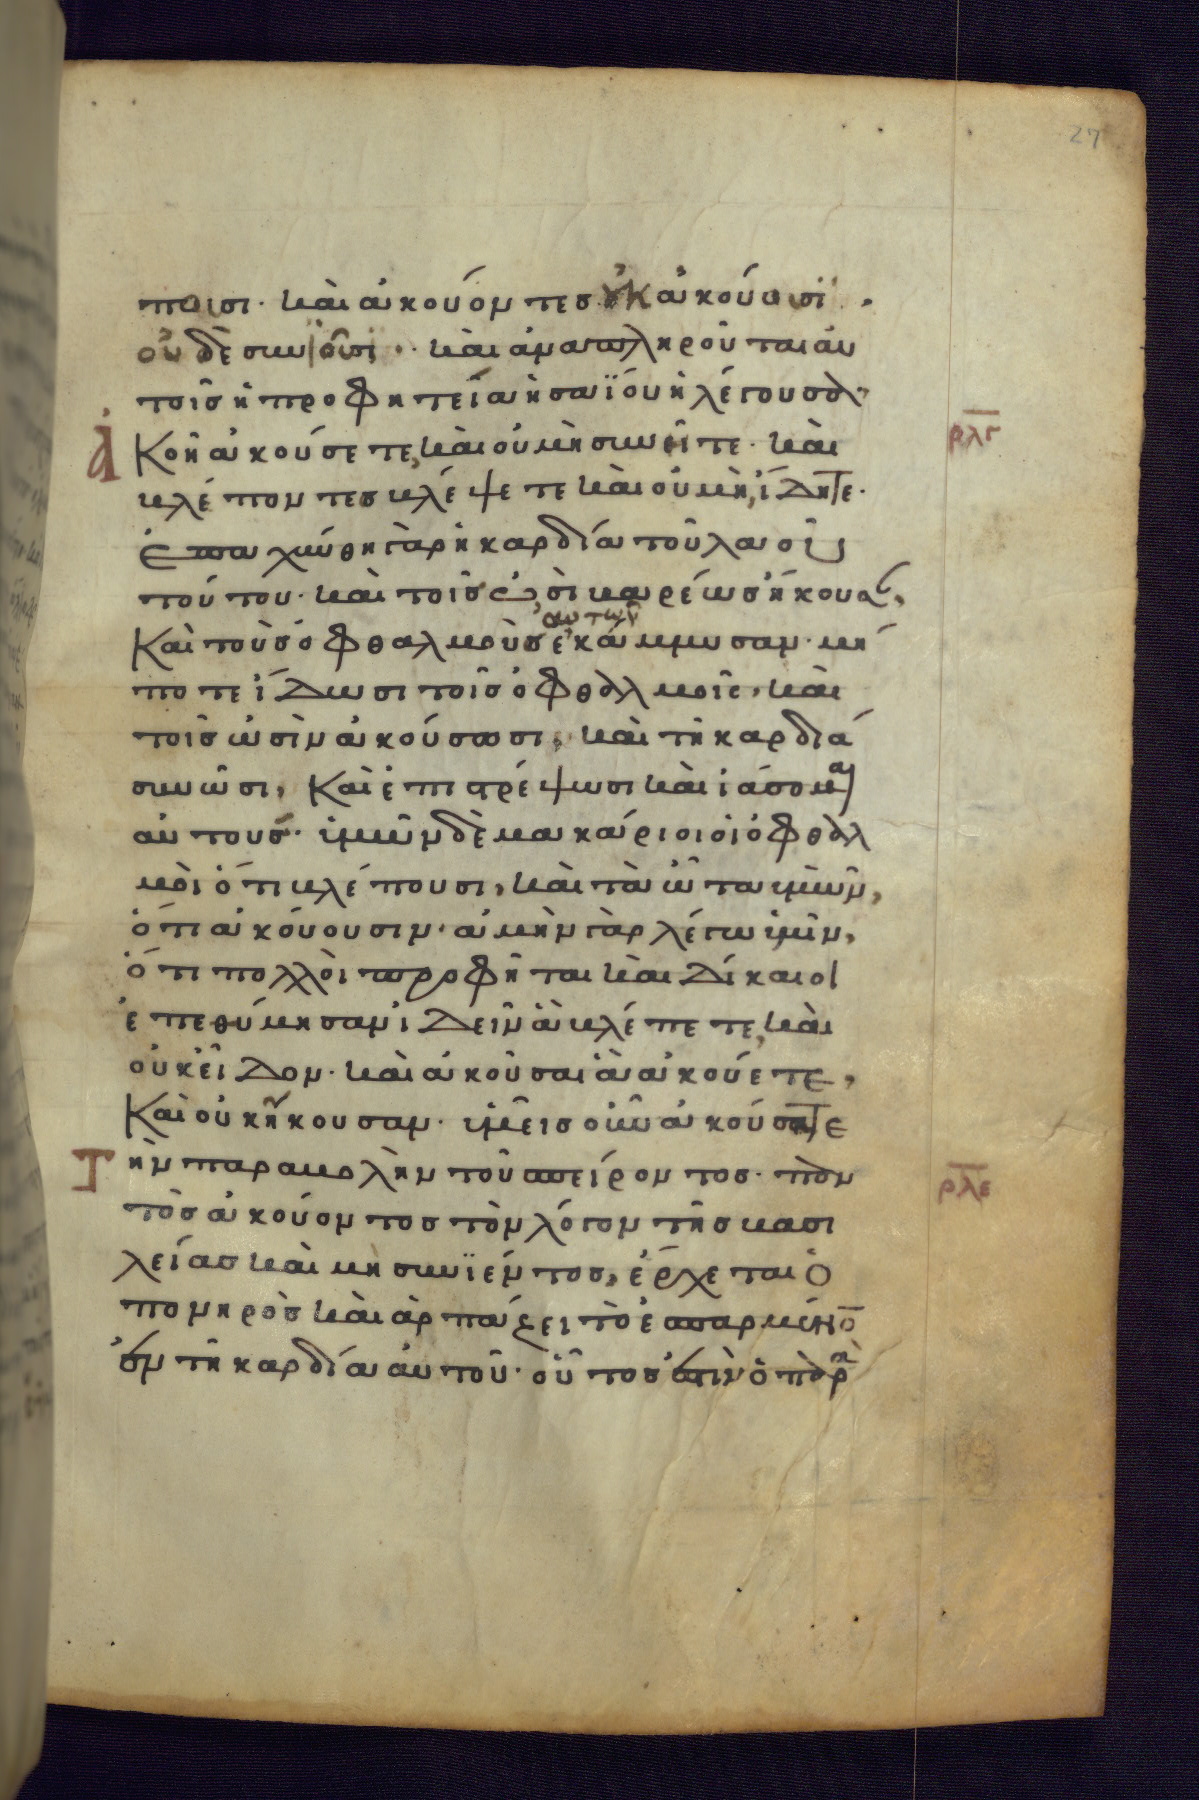 27
πουσι· καὶ ἀκούοντες οὐκ ἀκούουσϊ·
οὐδὲ συνϊοῦσϊ· καὶ ἀναπληροῦται αὐ
τοῖς ἡ προφητεία ἡσαϊου ἡ λέγουσα·
Ἀκοῆ ἀκούσετε, καὶ οὐ μὴ συνῆτε· καὶ
ρλγ
βλέποντες βλέψετε καὶ οὐ μὴ ἴδητε·
ἐπαχύνθη γὰρ ἡ καρδία τοῦ λαοῦ
τούτου· καὶ τοῖς ὠσὶ βαρέως ἤκουσαν,
αὐτῶν
Καὶ τοὺς ὀφθαλμοὺς ἐκάμμυσαν· μή
ποτε ἴδωσι τοῖς ὀφθαλμοῖς, καὶ
τοῖς ὠσὶν ἀκούσωσι, καὶ τῆ καρδία
συνῶσι, Καὶ ἐπιστρέψωσι καὶ ἰάσομαι
αὐτους· ὑμῶν δὲ μακάριοι οἱ ὀφθαλ
μοὶ ὅτι βλέπουσι, καὶ τὰ ὦτα ὑμῶν,
ὅτι ἀκόυουσιν· ἀμὴν γὰρ λέγω ὑμῖν,
ὅτι πολλοὶ προφῆται καὶ Δίκαιοι
ἐπεθύμησαν ἰΔεῖν ἃ βλέπετε, καὶ
οὐκ εἶΔον· καὶ ἀκοῦσαι ἃ ἀκούετε,
Καὶ οὐκ ἤκουσαν· ὑμεῖς οὖν ἀκούσατε
Τὴν παραβολὴν τοῦ σπείροντος· παν
ρλε
τὸς ἀκούοντος τὸν λόγον τῆς βασι
λείας καὶ μὴ συνϊέντος, ἔρχεται ὁ
πονηρὸς καὶ ἁρπάζει τὸ ἐσπαρμένον
ἐν τῆ καρδία αὐτοῦ· οὗτος ἐστὶν ὁ παρὰ